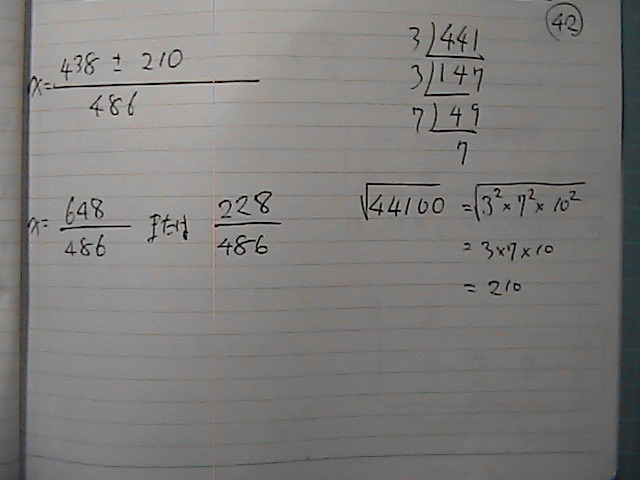 42
x= 438 ± 210 / 486
3 ) 441
3 ) 147
7 ) 49
7
x= 648 / 486 または 228 / 486
√44100 = √3² × 7² × 10²
= 3 × 7 × 10
= 210